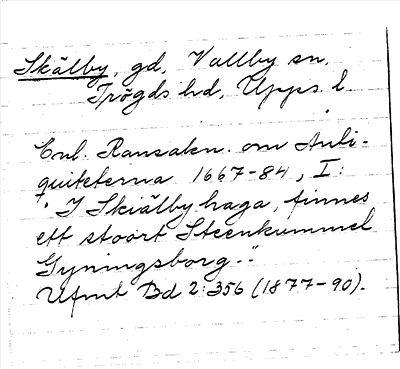 Skälby, gd, Vallby sn,
Trögds hd, Upps. l.
Enl. Ransakn. om Anti-
quiteterna 1667-84, I:
"I Skiälby haga, finnes
ett stoort Steenkummel
Gyningsborg.."
Ufmt Bd 2:356 (1877-90).